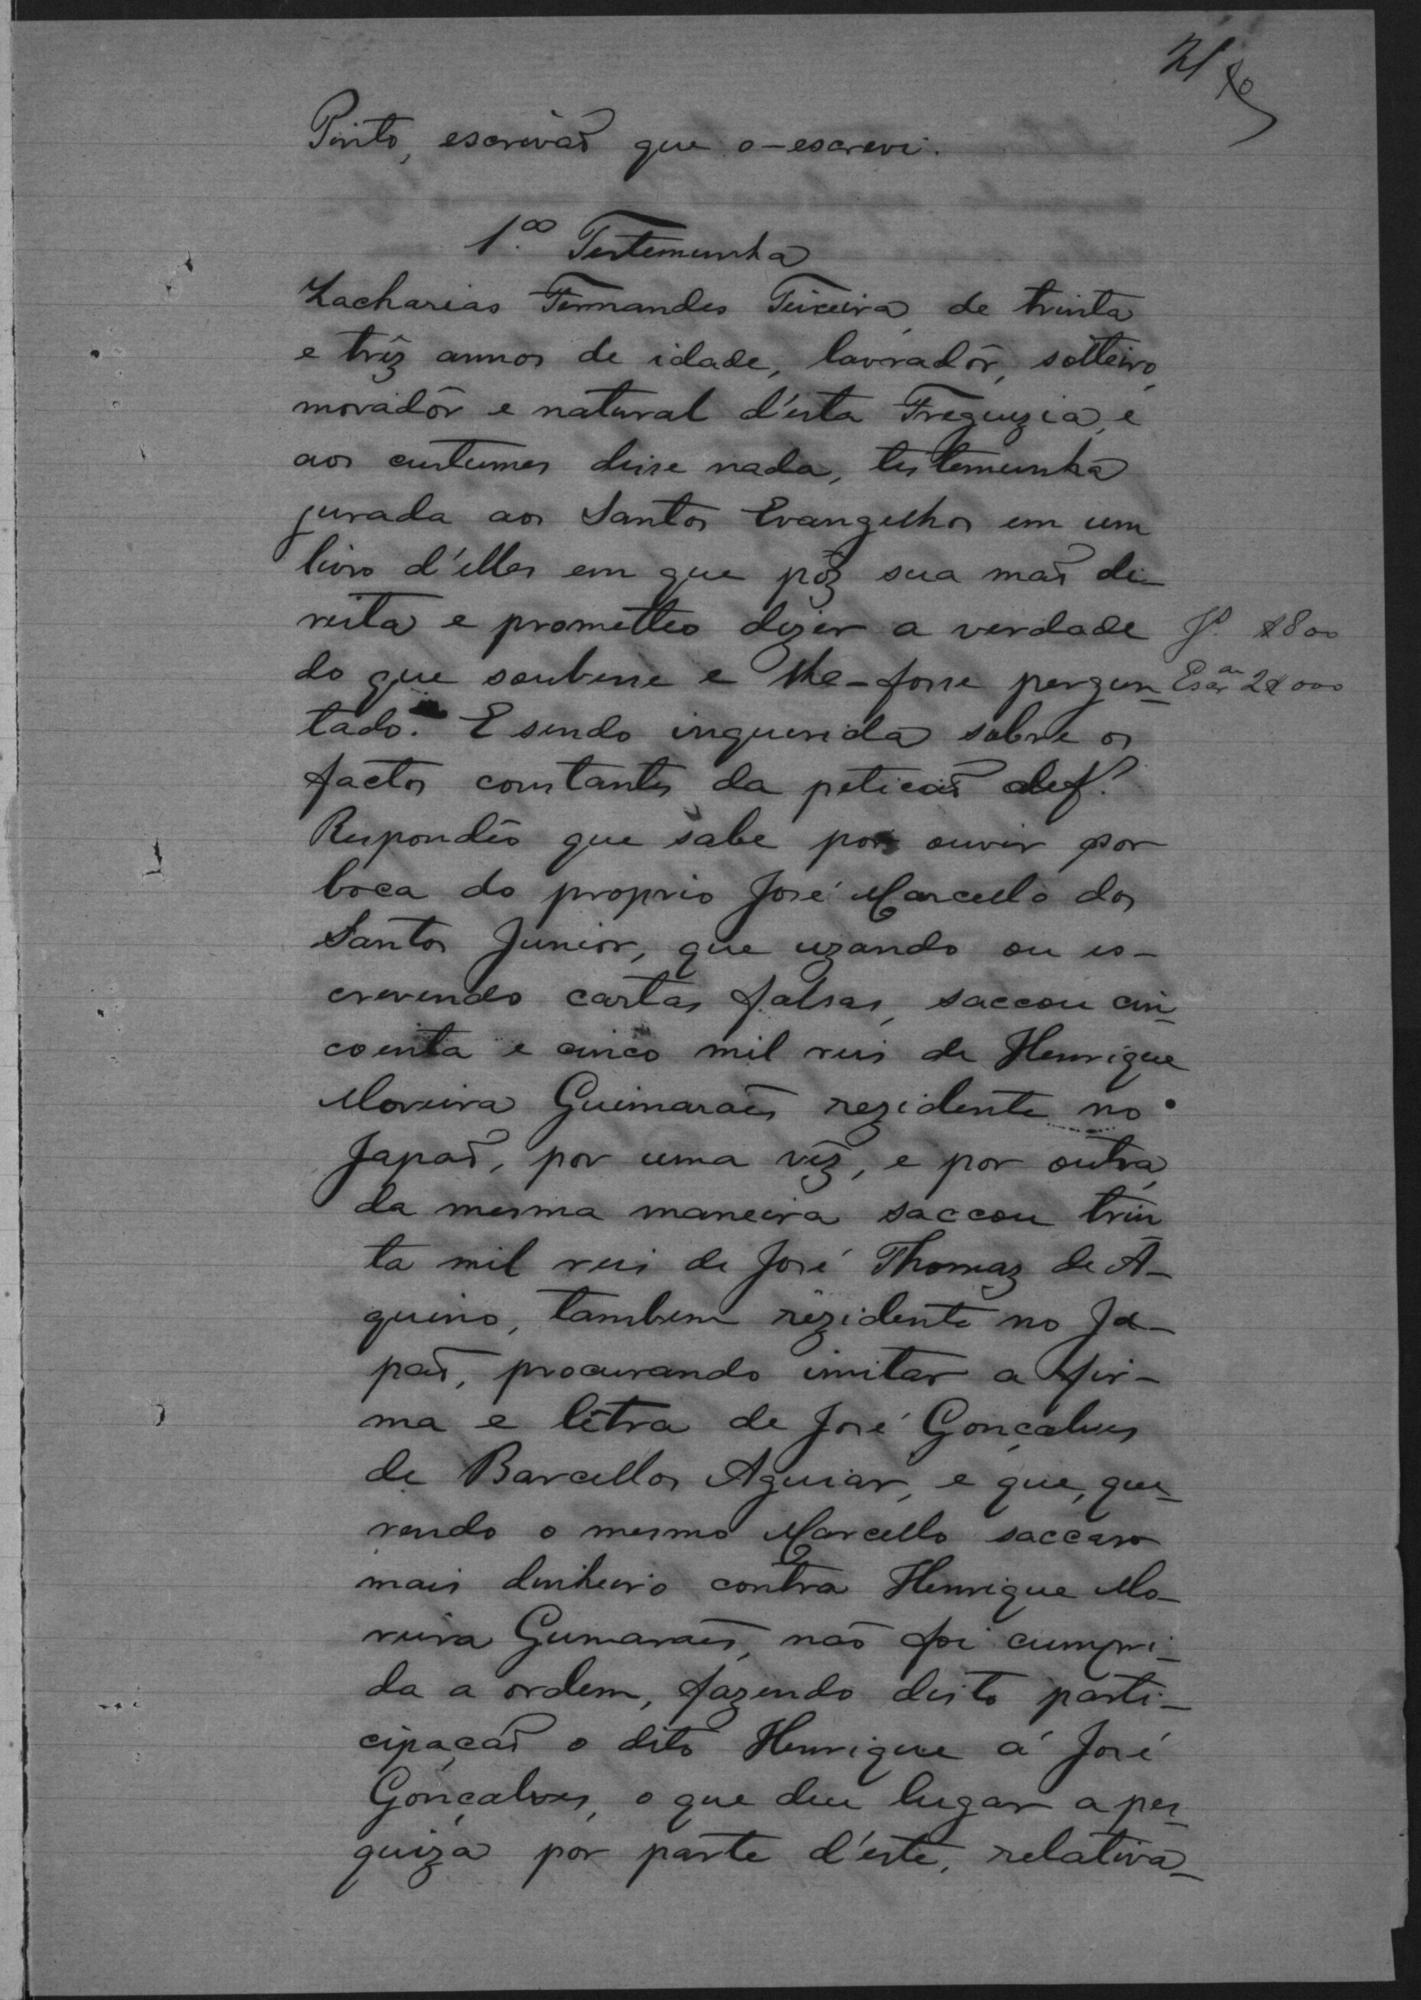 21
Pinto, escrivaõ que o-escrevi.
1.ª Testemunha
Zacharias Fernandes Teixeira, de trinta
e trêz annos de idade, lavradôr, solteiro,
moradôr e natural d'esta Freguezia, e
aos custumes disse nada, testemunha
jurada aos Santos Evangelhos em um
livro d'elles em que pôz sua maõ di-
reita e prometteo dizer a verdade
J.º $800
do que soubesse e lhe-fosse pergun-
Esc.am 2$000
tado. E sendo inquerida sobre os
factos constantes da peticaõ de f.
Respondêo que sabe por ouvir por
boca do proprio José Marcello dos
Santos Junior, que uzando ou es-
crevendo cartas falsas, saccou cin-
coenta e cinco mil reis de Henrique
Moreira Guimaraẽs rezidente no
Japaõ, por uma vêz, e por outra,
da mesma maneira saccou trin
ta mil reis de José Thomaz de A-
quino, tambem rezidente no Ja-
paõ, procurando imitar a fir-
ma e lêtra de José Gonçalves
de Barcellos Aguiar, e que, que-
rendo o mesmo Marcello saccar
mais dinheiro contra Henrique Mo-
reira Gumaraẽs, naõ foi cumpri-
da a ordem, fazendo disto parti-
cipaçaõ o dito Henrique á José
Gonçalves, o que deu lugar a pes-
quiza por parte d'este, relativa-